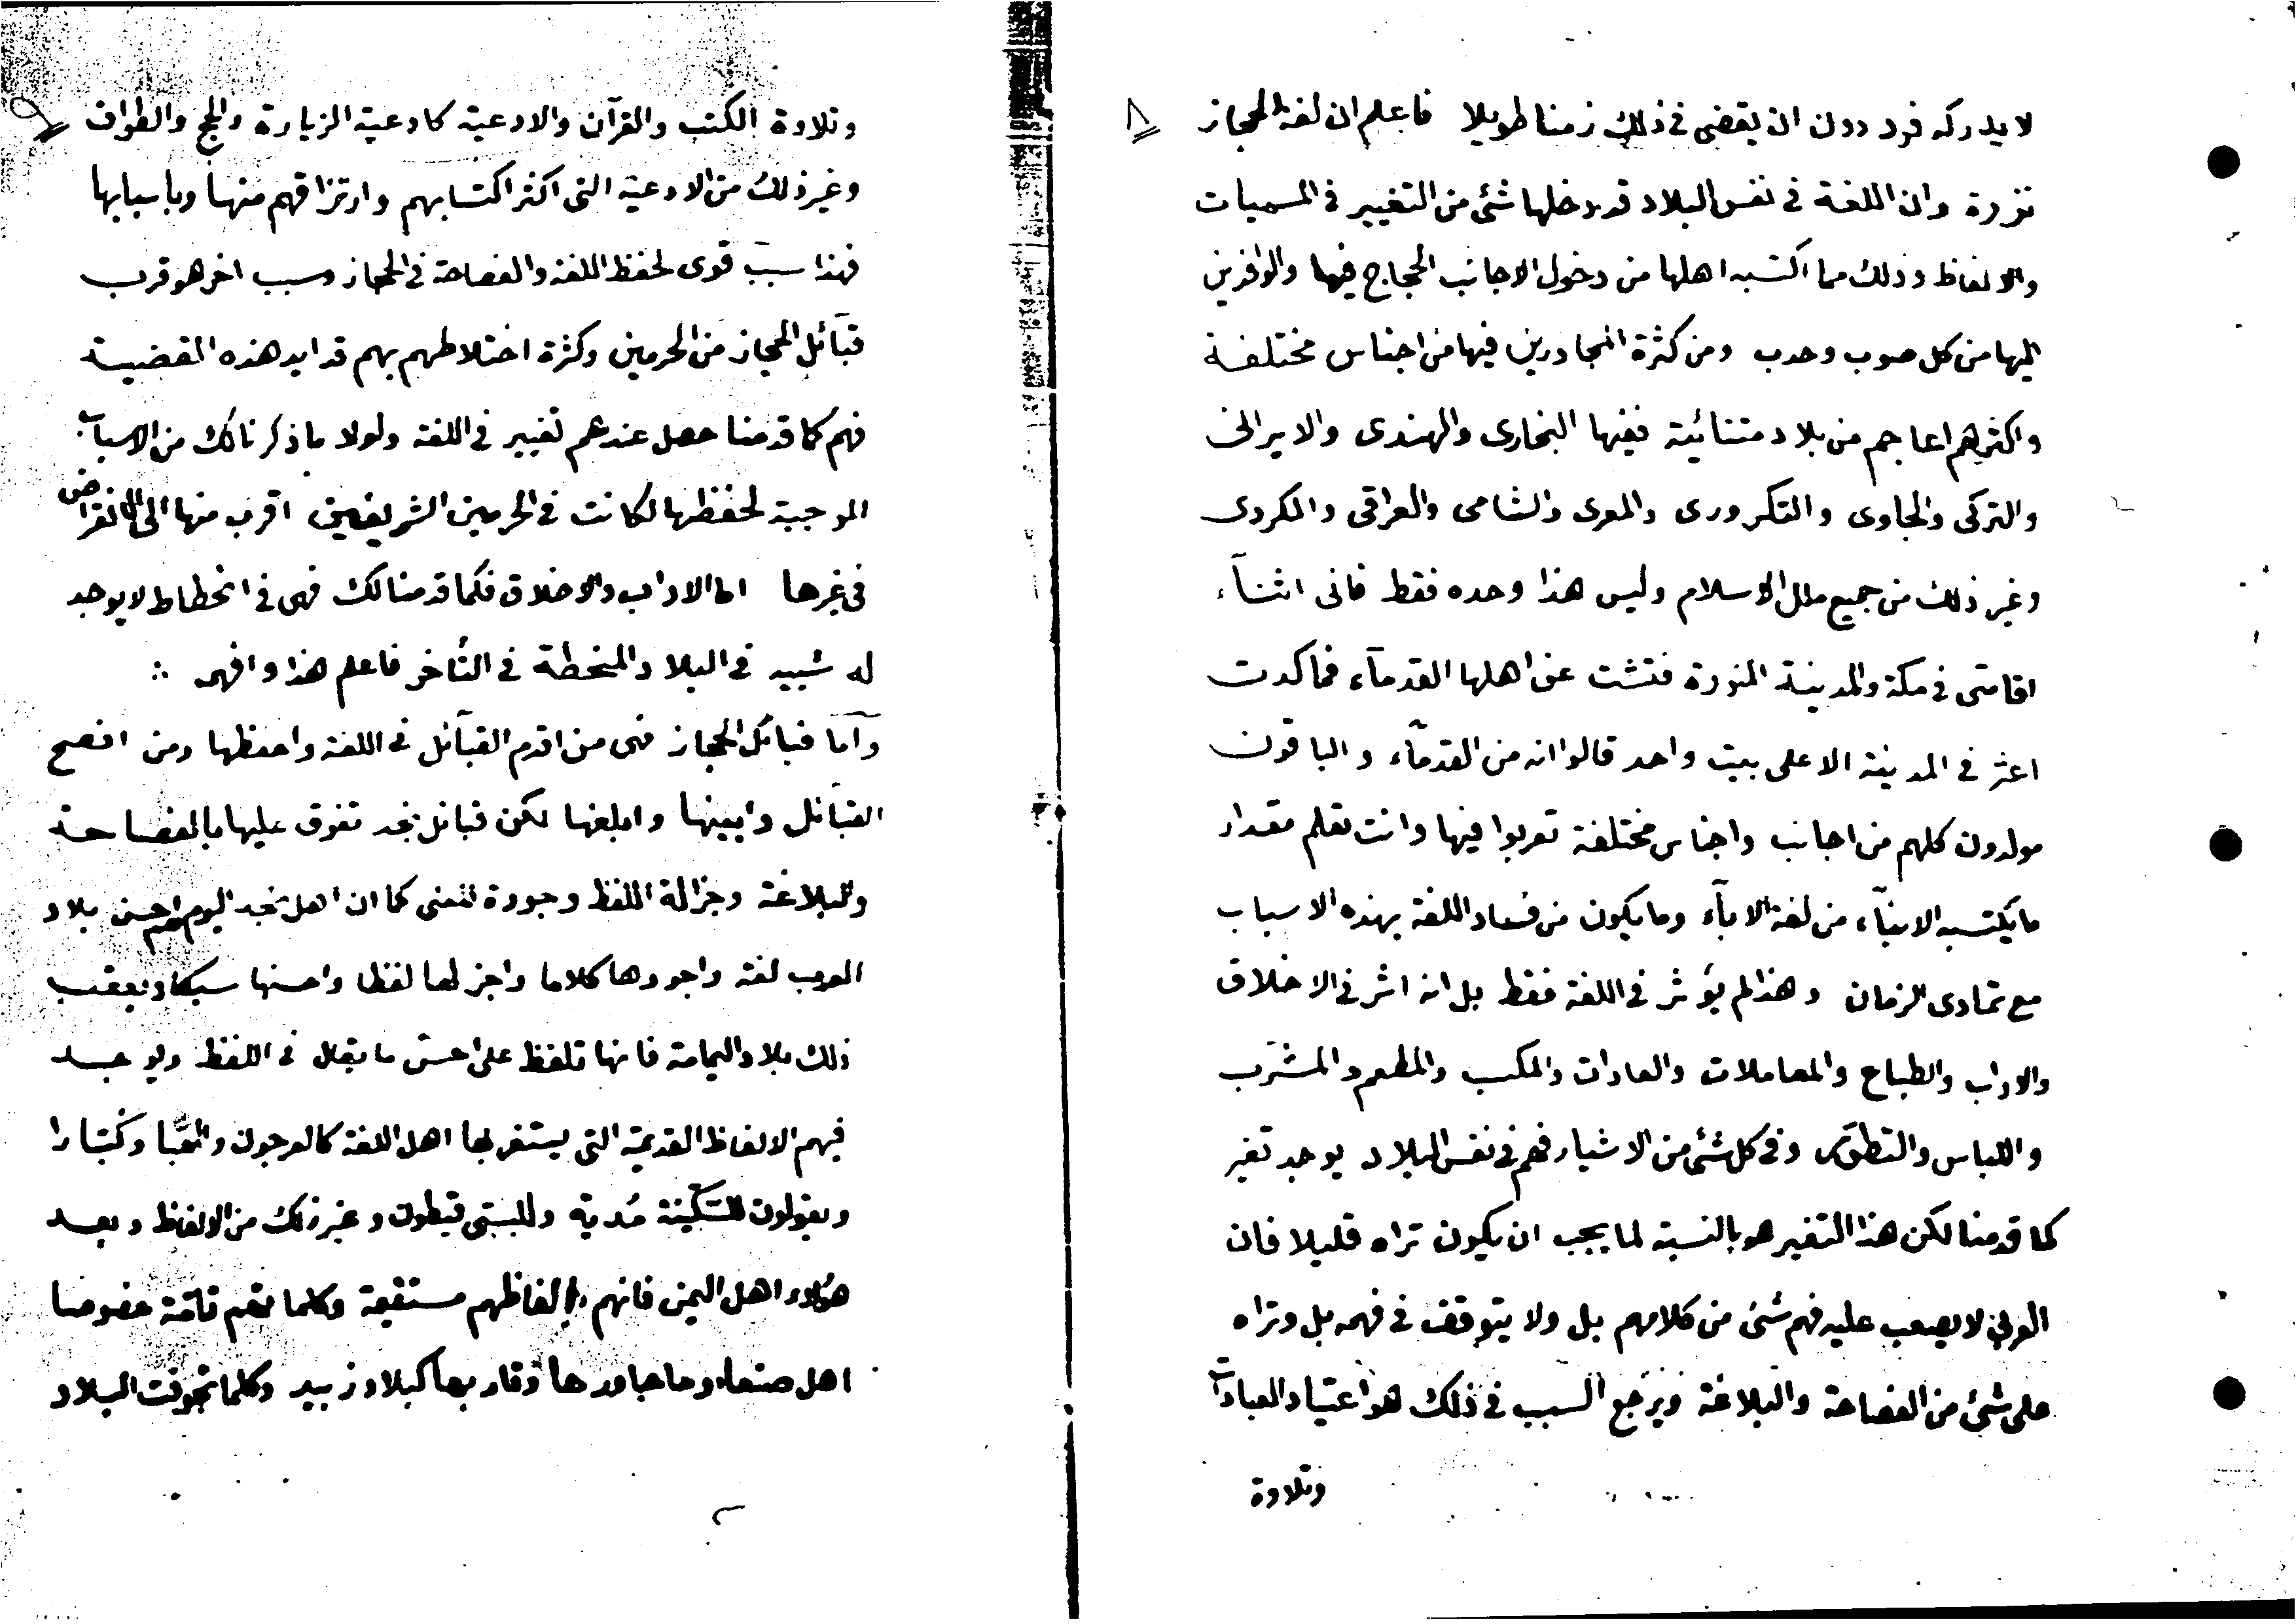 ٨
لا يدركه فرد دون ان يقضى فى ذلك زمنا طويلا فاعلم ان لغة الحجاز
نزرة وان اللغة فى نفس البلاد قد دخلها شئ من التغيير فى المسميات
والالفاظ وذلك مما اكتسبه اهلها من دخول الاجانب الحجاج فيها والوافدين
اليها من كل صوب وحدب ومن كثرة المجاورين فيها من اجناس مختلفة
واكثرهم اعاجم من بلاد متنائية ففيها البخارى والهندى والايرانى
والتركى والجاوى والتكرورى والمصرى والشامى والعراقى والكردى
وغير ذلك من جميع ملل الاسلام وليس هذا وحده فقط فانى اثنآء
اقامتى فى مكة والمدينة المنورة فتشت عن اهلها القدمآء فما كدت
اعثر فى المدينة الا على بيت واحد قالوا انه من القدمآء والباقون
مولدون كلهم من اجانب واجناس مختلفة تعربوا فيها وانت تعلم مقدار
ما يكتسبه الابنآء من لغة الابآء وما يكون من فساد اللغة بهذه الاسباب
مع تمادى الزمان وهذا لم يؤثر فى اللغة فقط بل انه اثر فى الاخلاق
والاداب والطباع والمعاملات والعادات والمكسب والمطعم والمشرب
واللباس والتطور وفى كل شئ من الاشياء فهم فى نفس البلاد يوجد تغير
كما قدمنا لكن هذا التغير هو بالنسبة لما يجب ان يكون تراه قليلا فان
العربى لا يصعب عليه فهم شئ من كلامهم بل ولا يتوقف فى فهمه بل وتراه
على شئ من الفصاحة والبلاغة ويرجع السبب فى ذلك هو اعتياد العبادات
وتلاوة
٩
وتلاوة الكتب والقرآن والادعية كادعية الزيارة والحج والطواف
وغير ذلك من الادعية التى اكثر اكتسابهم وارتزاقهم منها وباسبابها
فهذا سبب قوى لحفظ اللغة والفصاحة فى الحجاز وسبب اخر هو قرب
قبآئل الحجاز من الحرمين وكثرة اختلاطهم بهم قد ايد هذه القضية
فهم كما قدمنا حصل عندهم تغيير فى اللغة ولولا ما ذكرنا لك من الاسباب
الموجبة لحفظها لكانت فى الحرمين الشريفين اقرب منها الى الانقراض
فى غيرها اما الاداب والاخلاق فكما قدمنا لك فهى فى انحطاط لا يوجد
له شبيه فى البلاد المنحطة فى التأخر فاعلم هذا وافهم ∴
وآما قبائل الحجاز فهى من اقدم القبآئل فى اللغة واحفظها ومن افصح
القبآئل وابينها وابلغها لكن قبائل نجد تفوق عليها بالفصاحة
والبلاغة وجزالة اللفظ وجودة المعنى كما ان اهل نجد اليوم هم احسن بلاد
العرب لغة واجودها كلاما واجزلها لفظا واحسنها سبكا ويعقب
ذلك بلاد اليمامة فانها تلفظ على احسن ما يقال فى اللفظ ويوجد
فيهم الالفاظ القديمة التى يستغربها اهل اللغة كالعرجون
ويقولون للسكينة مُدية وغير ذلك من الالفاظ وبعد
هؤلاء اهل اليمن فانهم الفاظهم مستقيمة خصوصا
اهل صنعاء وما جاورها وقاربها كبلاد زبيد وكلما تجوفت البلاد